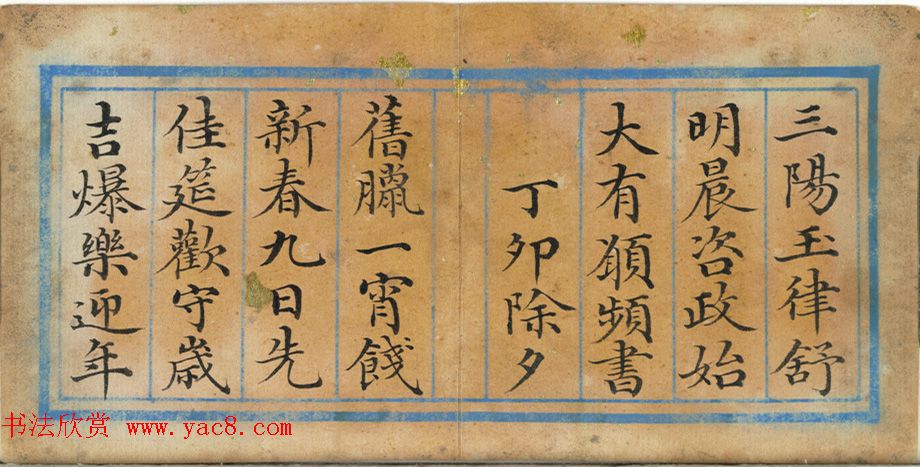 三陽玉律舒
明晨咨政始
大有願頻書
丁卯除夕
舊臘一宵餞
新春九日先
佳筵歡守歲
吉爆樂迎年
书法欣赏 www.yac8.com